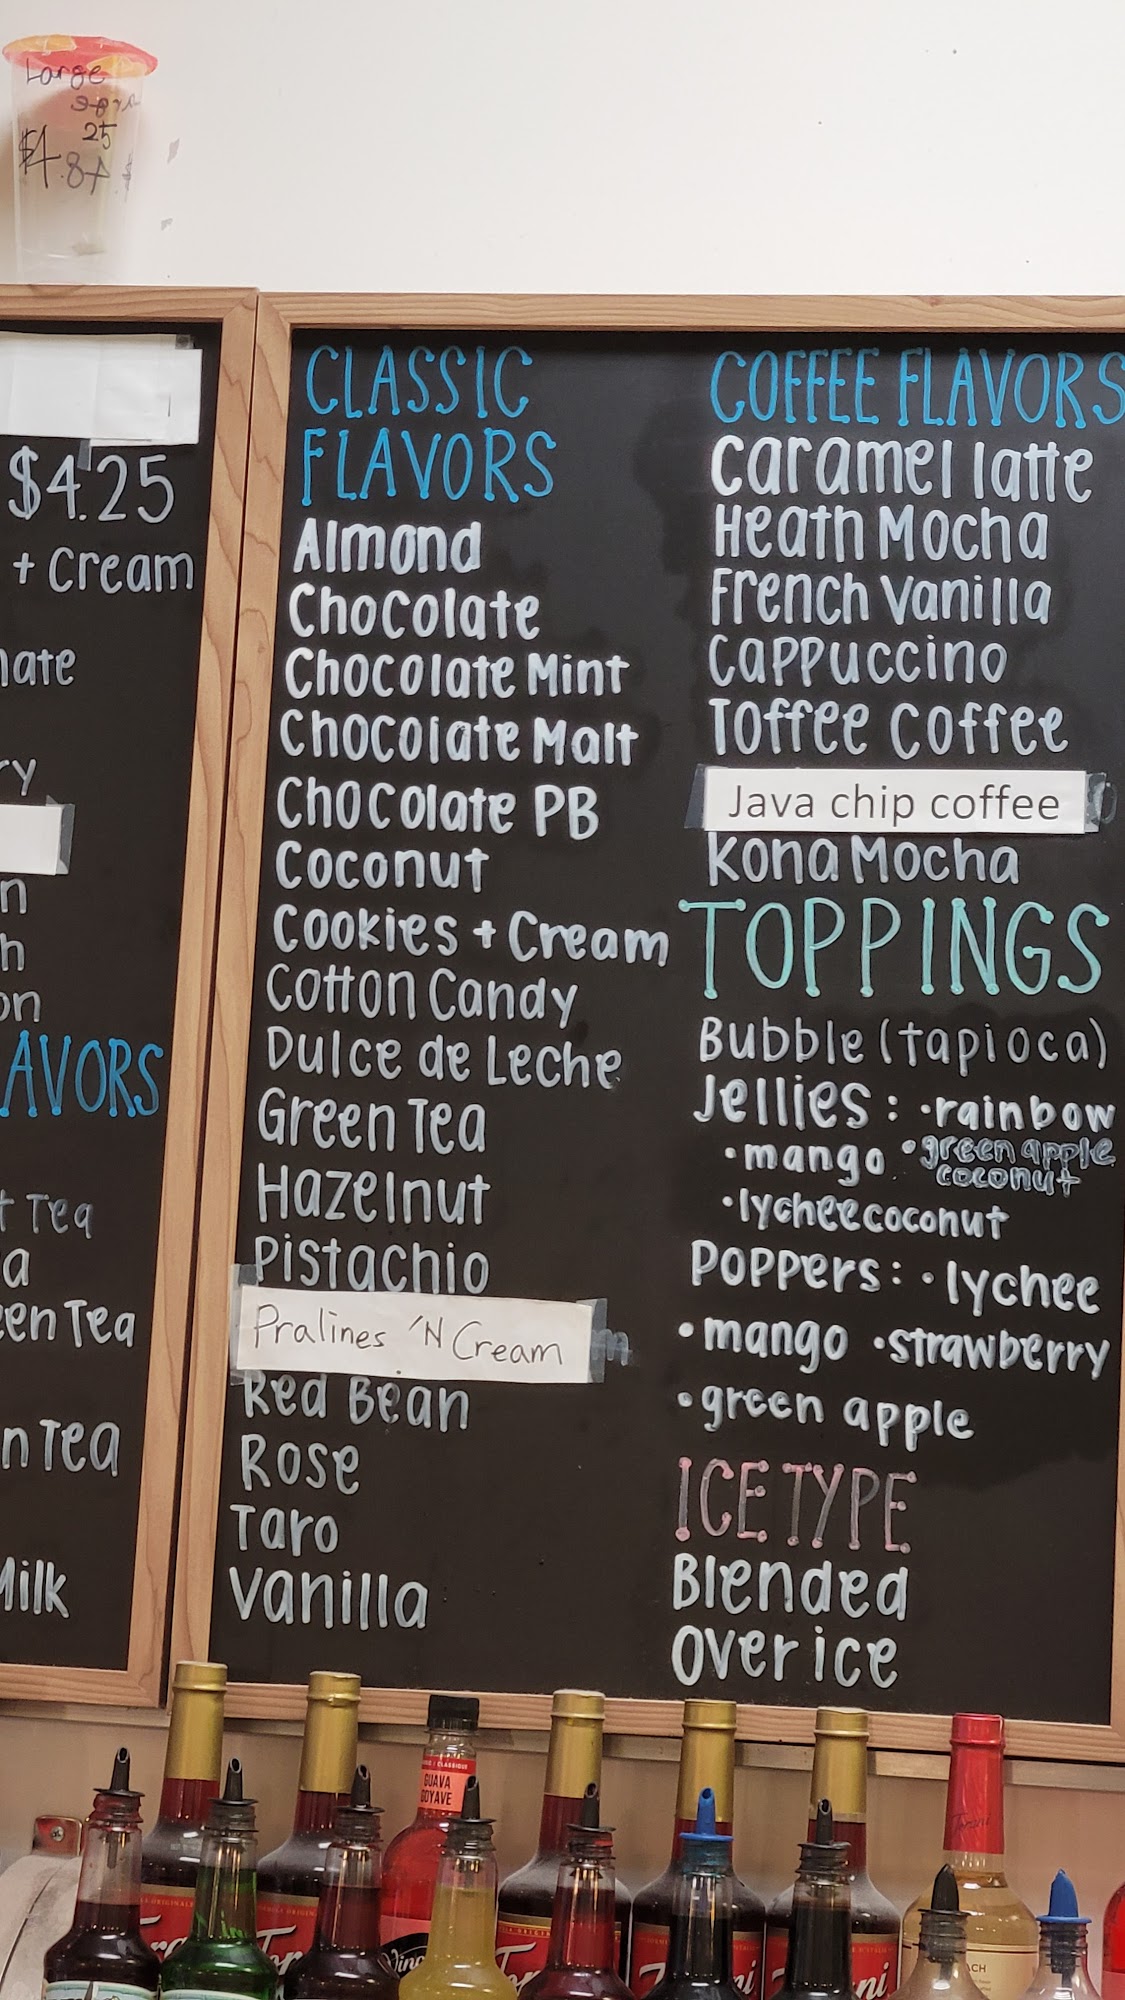 Large
25
$4.87
$4.25
+ Cream
AVORS
Tea
Tea
Tea
CLASSIC
FLAVORS
Almond
Chocolate
Chocolate Mint
Chocolate Malt
Chocolate PB
Coconut
Cookies + Cream
Cotton Candy
Dulce de Leche
Green Tea
Hazelnut
Pistachio
Pralines 'N Cream
Red Bean
Rose
Taro
Vanilla
COFFEE FLAVORS
Caramel latte
Heath Mocha
French Vanilla
Cappuccino
Toffee Coffee
Java chip coffee
Kona Mocha
TOPPINGS
Bubble (tapioca)
Jellies: •rainbow
•mango •green apple
coconut
•lychee coconut
Poppers: •lychee
•mango •strawberry
•green apple
ICE TYPE
Blended
Over ice
GUAVA
GOYAVE
Torani